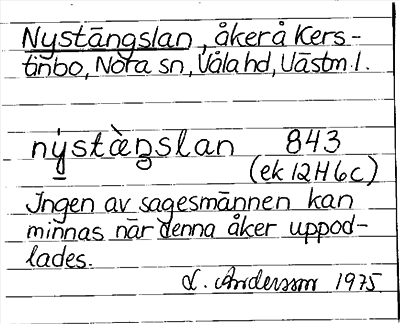 Nystängslan, åker å Kers-
tinbo, Nora sn, Våla hd, Västm. l.
nýstàŋslan 843
(ek 12H6c)
Ingen av sagesmännen kan
minnas när denna åker uppod-
lades.
L. Andersson 1975